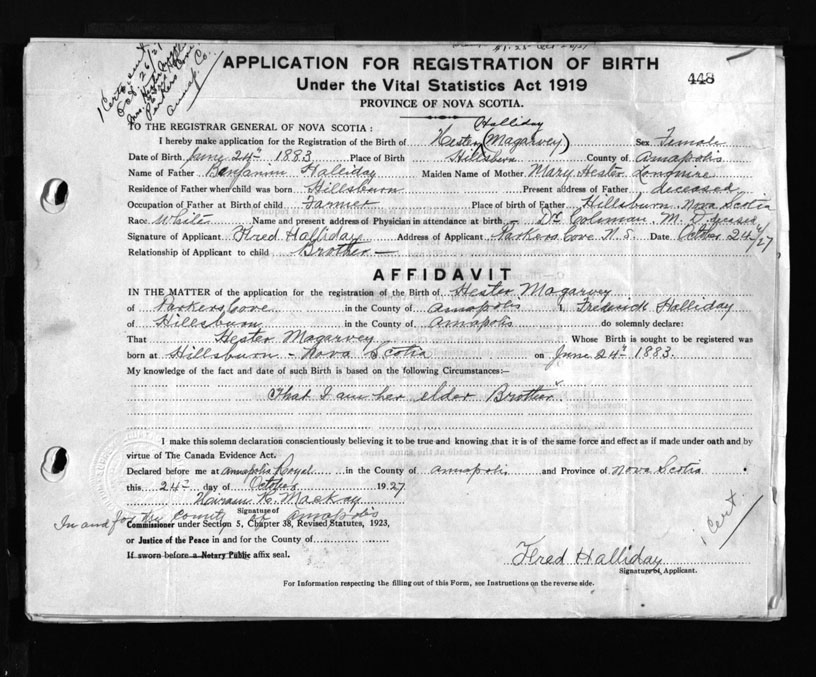 1 Cert. sent
Oct. 26/27
Parkers Cove
Annap. Co.
APPLICATION FOR REGISTRATION OF BIRTH
Under the Vital Statistics Act 1919
448
PROVINCE OF NOVA SCOTIA.
Halliday
TO THE REGISTRAR GENERAL OF NOVA SCOTIA:
I hereby make application for the Registration of the Birth of Hester (Magarvey) Sex Female
Date of Birth June 24th 1883 Place of Birth Hillsburn County of Annapolis
Name of Father Benjamin Halliday Maiden Name of Mother Mary Hester Longmire
Residence of Father when child was born Hillsburn Present address of Father deceased
Occupation of Father at Birth of child Farmer Place of birth of Father Hillsburn Nova Scotia
Race White Name and present address of Physician in attendance at birth Dr Coleman M. D.
Signature of Applicant Fred Halliday Address of Applicant Parkers Cove N. S. Date October 24th/27
Relationship of Applicant to child Brother —
AFFIDAVIT
IN THE MATTER of the application for the registration of the Birth of Hester Magarvey
of Parkers Cove in the County of Annapolis I, Frederick Halliday
of Hillsburn in the County of Annapolis do solemnly declare:
That Hester Magarvey Whose Birth is sought to be registered was
born at Hillsburn - Nova Scotia on June 24th 1883.
My knowledge of the fact and date of such Birth is based on the following Circumstances:—
That I am her elder Brother.
I make this solemn declaration conscientiously believing it to be true and knowing that it is of the same force and effect as if made under oath and by
virtue of The Canada Evidence Act.
Declared before me at Annapolis Royal in the County of Annapolis and Province of Nova Scotia
this 24th day of October 1927
Hiram K. MacKay
Signature of
In and for the County of Annapolis
Commissioner under Section 5, Chapter 38, Revised Statutes, 1923,
or Justice of the Peace in and for the County of
If sworn before a Notary Public affix seal.
1 Cert.
Fred Halliday
Signature of Applicant.
For Information respecting the filling out of this Form, see Instructions on the reverse side.